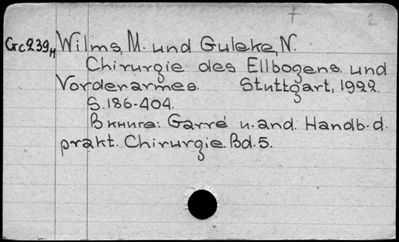 Gc239H Wilms, M. und Guleke, N.
Chirurgie des Ellbogens und
Vorderarmes. Stuttgart, 1922.
S. 186-404.
В книге: Garré u. and. Handb. d.
prakt. Chirurgie. Bd. 5.